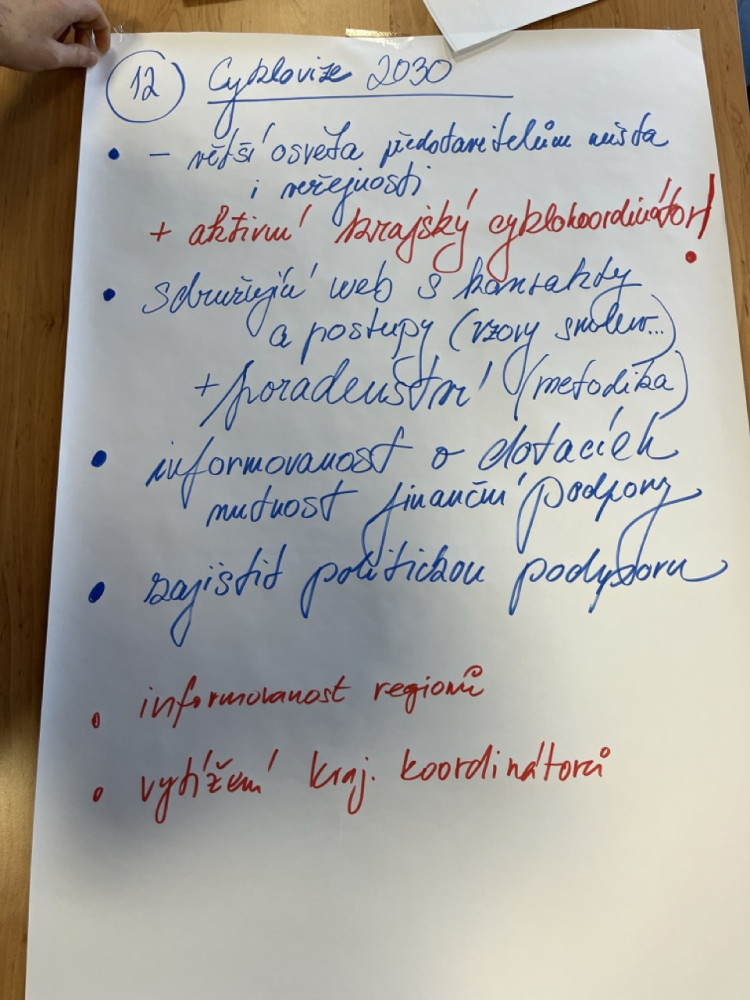 12 Cyklovize 2030
• – větší osvěta představitelům města
i veřejnosti
+ aktivní krajský cyklokoordinátor!
• sdružující web s kontakty
a postupy (vzory smluv...)
+ poradenství (metodika)
• informovanost o dotacích
nutnost finanční podpory
• zajistit politickou podporu
• informovanost regionů
• vytížení kraj. koordinátorů